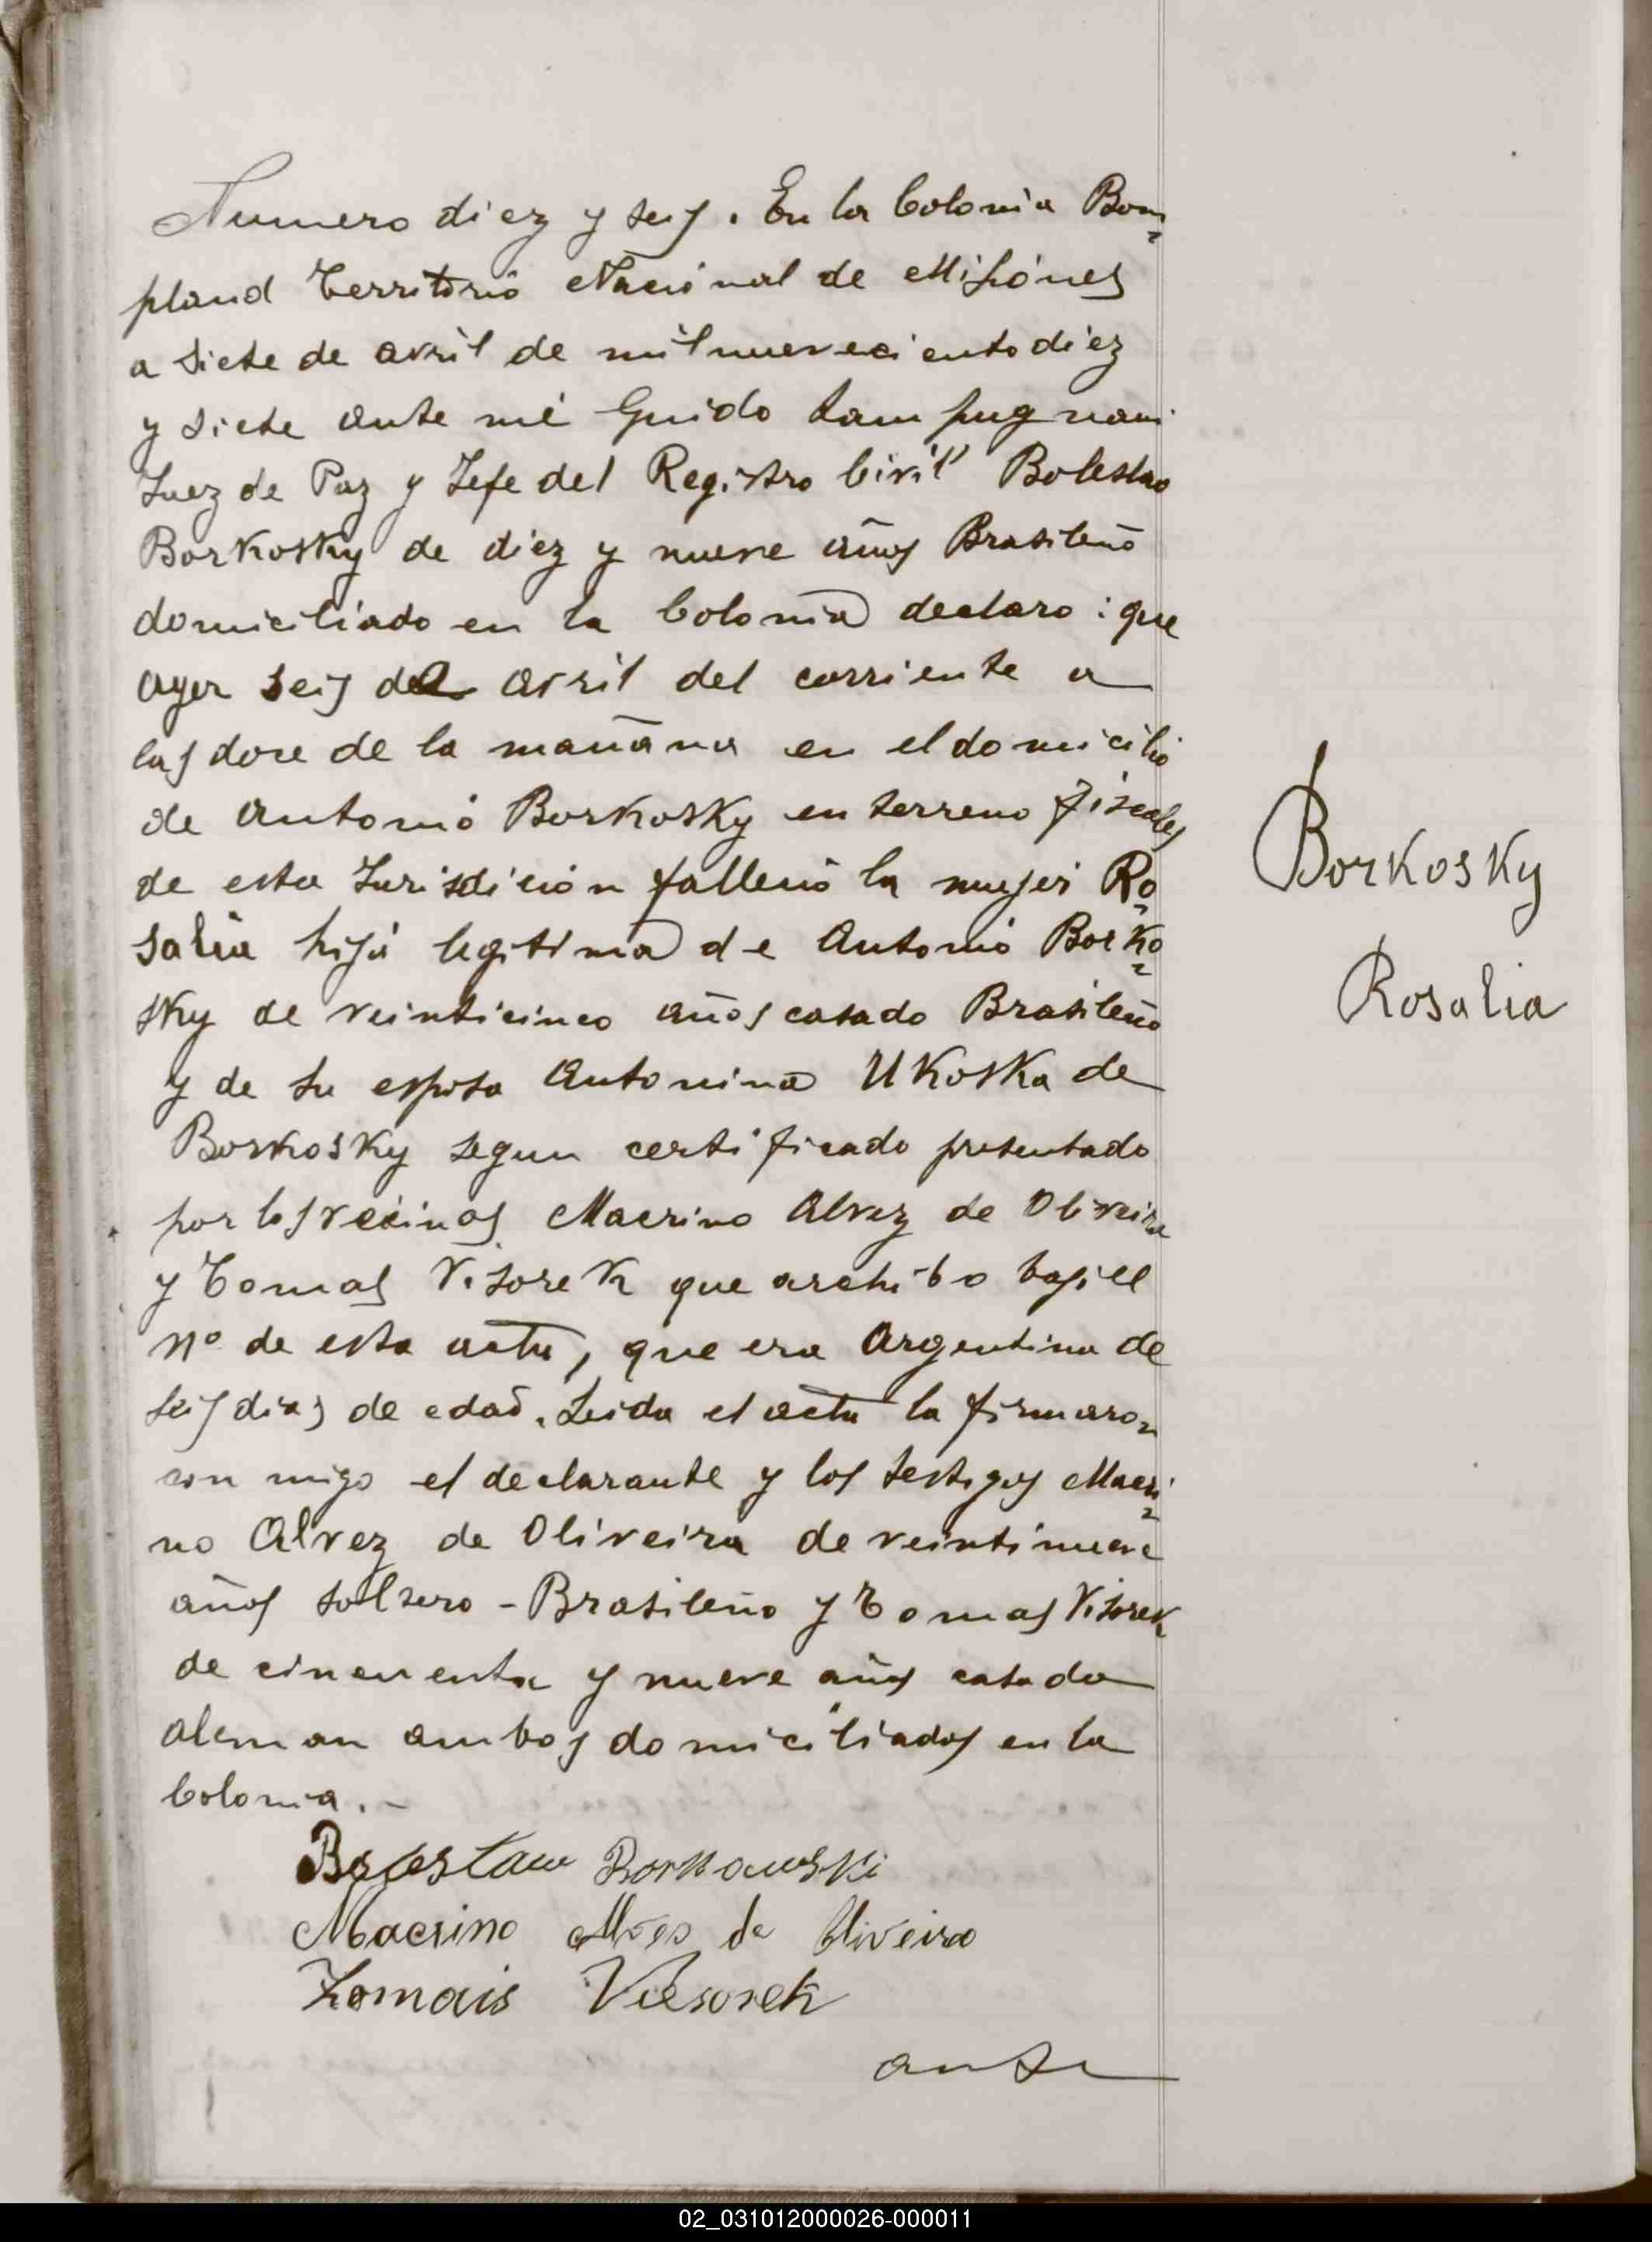 Numero diez y seis. En la Colonia Bom-
pland Territorio Nacional de Misiónes
a siete de avril de mil nuevecientodiez
y siete ante mi Guido Lampugnani
Juez de Paz y Jefe del Registro Civil Boleslao
Borkosky de diez y nueve años Brasileño
domiciliado en la Colonia declaro: que
ayer seis de avril del corriente a
las doce de la mañana en el domicilio
de Antonio Borkosky en terreno fiscales
de esta Jurisdición falleció la mujer Ro-
salia hija legitima de Antonio Borko-
sky de veinticinco años casado Brasileño
y de su esposa Antonina Ukoska de
Borkosky segun certificado presentado
por los vecinos Macrino Alvez de Oliveira
y Tomas Visorek que archibo bajo el
nº de esta acta, que era Argentina de
seis dias de edad. Leida el acta la firmaron
con migo el declarante y los testigos Macri-
no Alvez de Oliveira de veintinueve
años soltero - Brasileño y Tomas Visorek
de cincuenta y nueve años casado
aleman ambos domiciliados en la
Colonia.-
Borkosky
Rosalia
Boleslaw Borkowski
Macrino Alves de Oliveira
Tomais Viesorek
ante
02_031012000026-000011